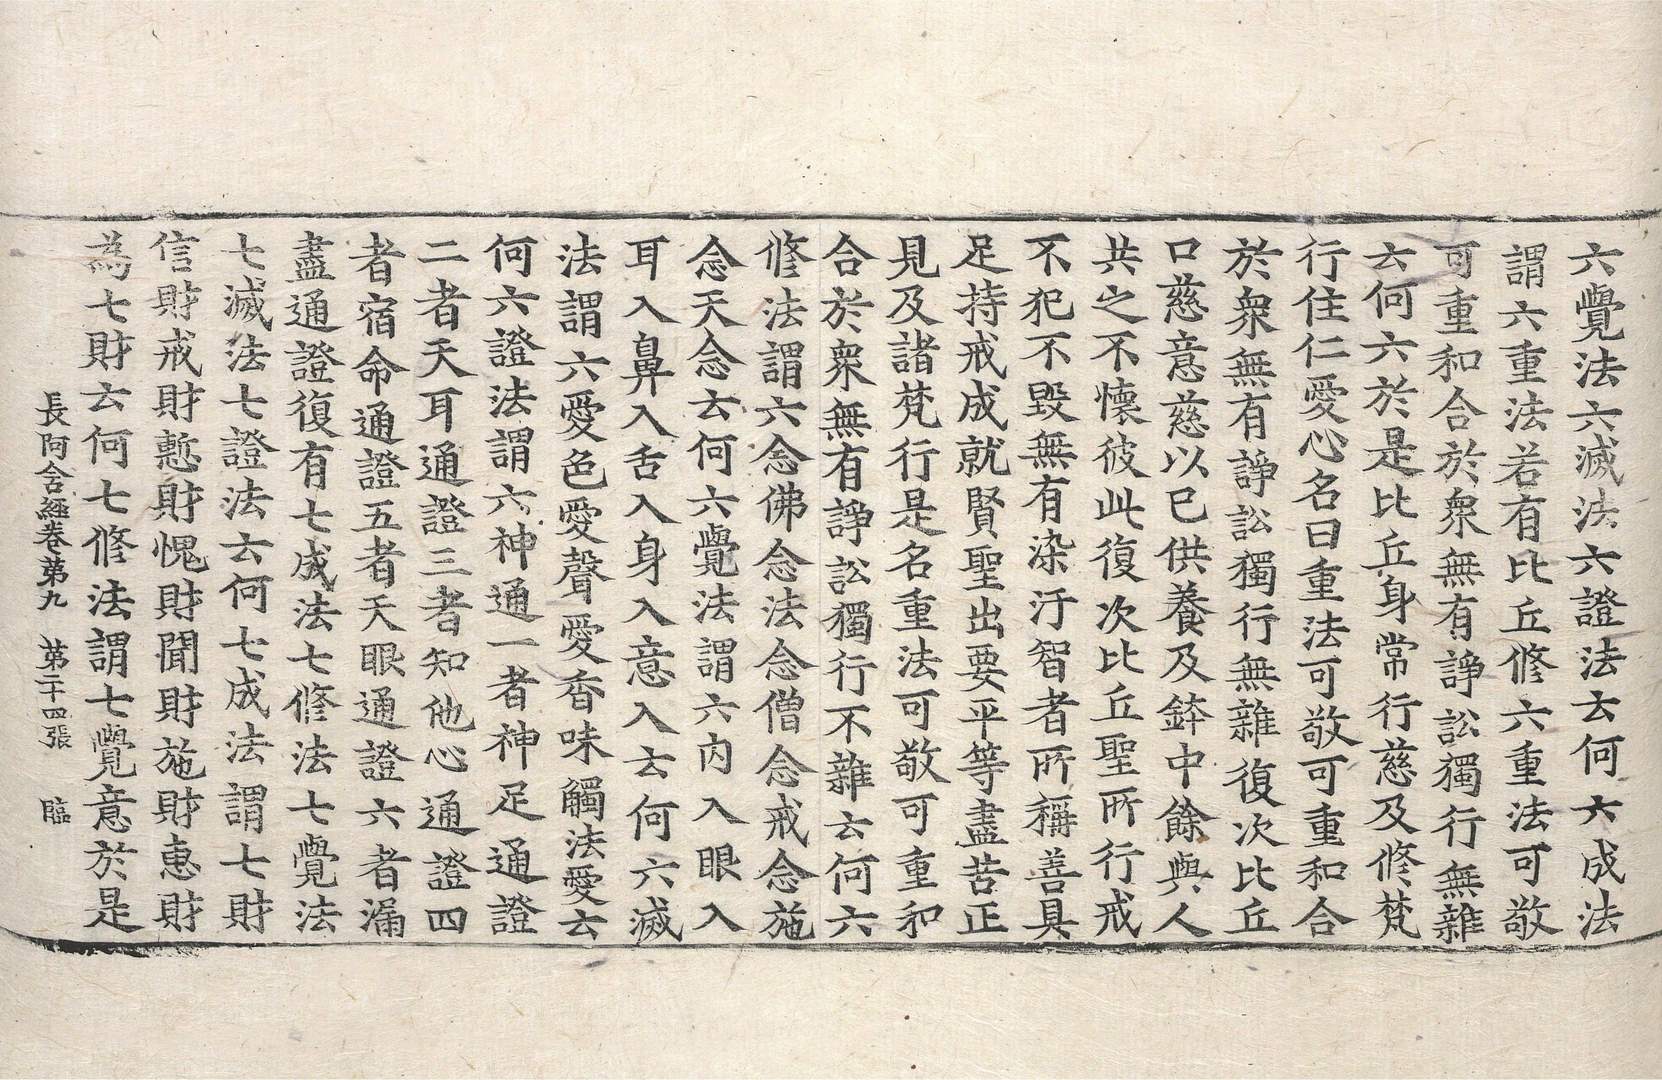 六覺法六滅法六證法云何六成法
謂六重法若有比丘修六重法可敬
可重和合於衆無有諍訟獨行無雜
云何六於是比丘身常行慈及修梵
行住仁愛心名曰重法可敬可重和合
於衆無有諍訟獨行無雜復次比丘
口慈意慈以己供養及鉢中餘與人
共之不懷彼此復次比丘聖所行戒
不犯不毀無有染汙智者所稱善具
足持戒成就賢聖出要平等盡苦正
見及諸梵行是名重法可敬可重和
合於衆無有諍訟獨行不雜云何六
修法謂六念佛念法念僧念戒念施
念天念云何六覺法謂六內入眼入
耳入鼻入舌入身入意入云何六滅
法謂六愛色愛聲愛香味觸法愛云
何六證法謂六神通一者神足通證
二者天耳通證三者知他心通證四
者宿命通證五者天眼通證六者漏
盡通證復有七成法七修法七覺法
七滅法七證法云何七成法謂七財
信財戒財慙財愧財聞財施財惠財
為七財云何七修法謂七覺意於是
長阿含經卷第九 第二十四張 臨